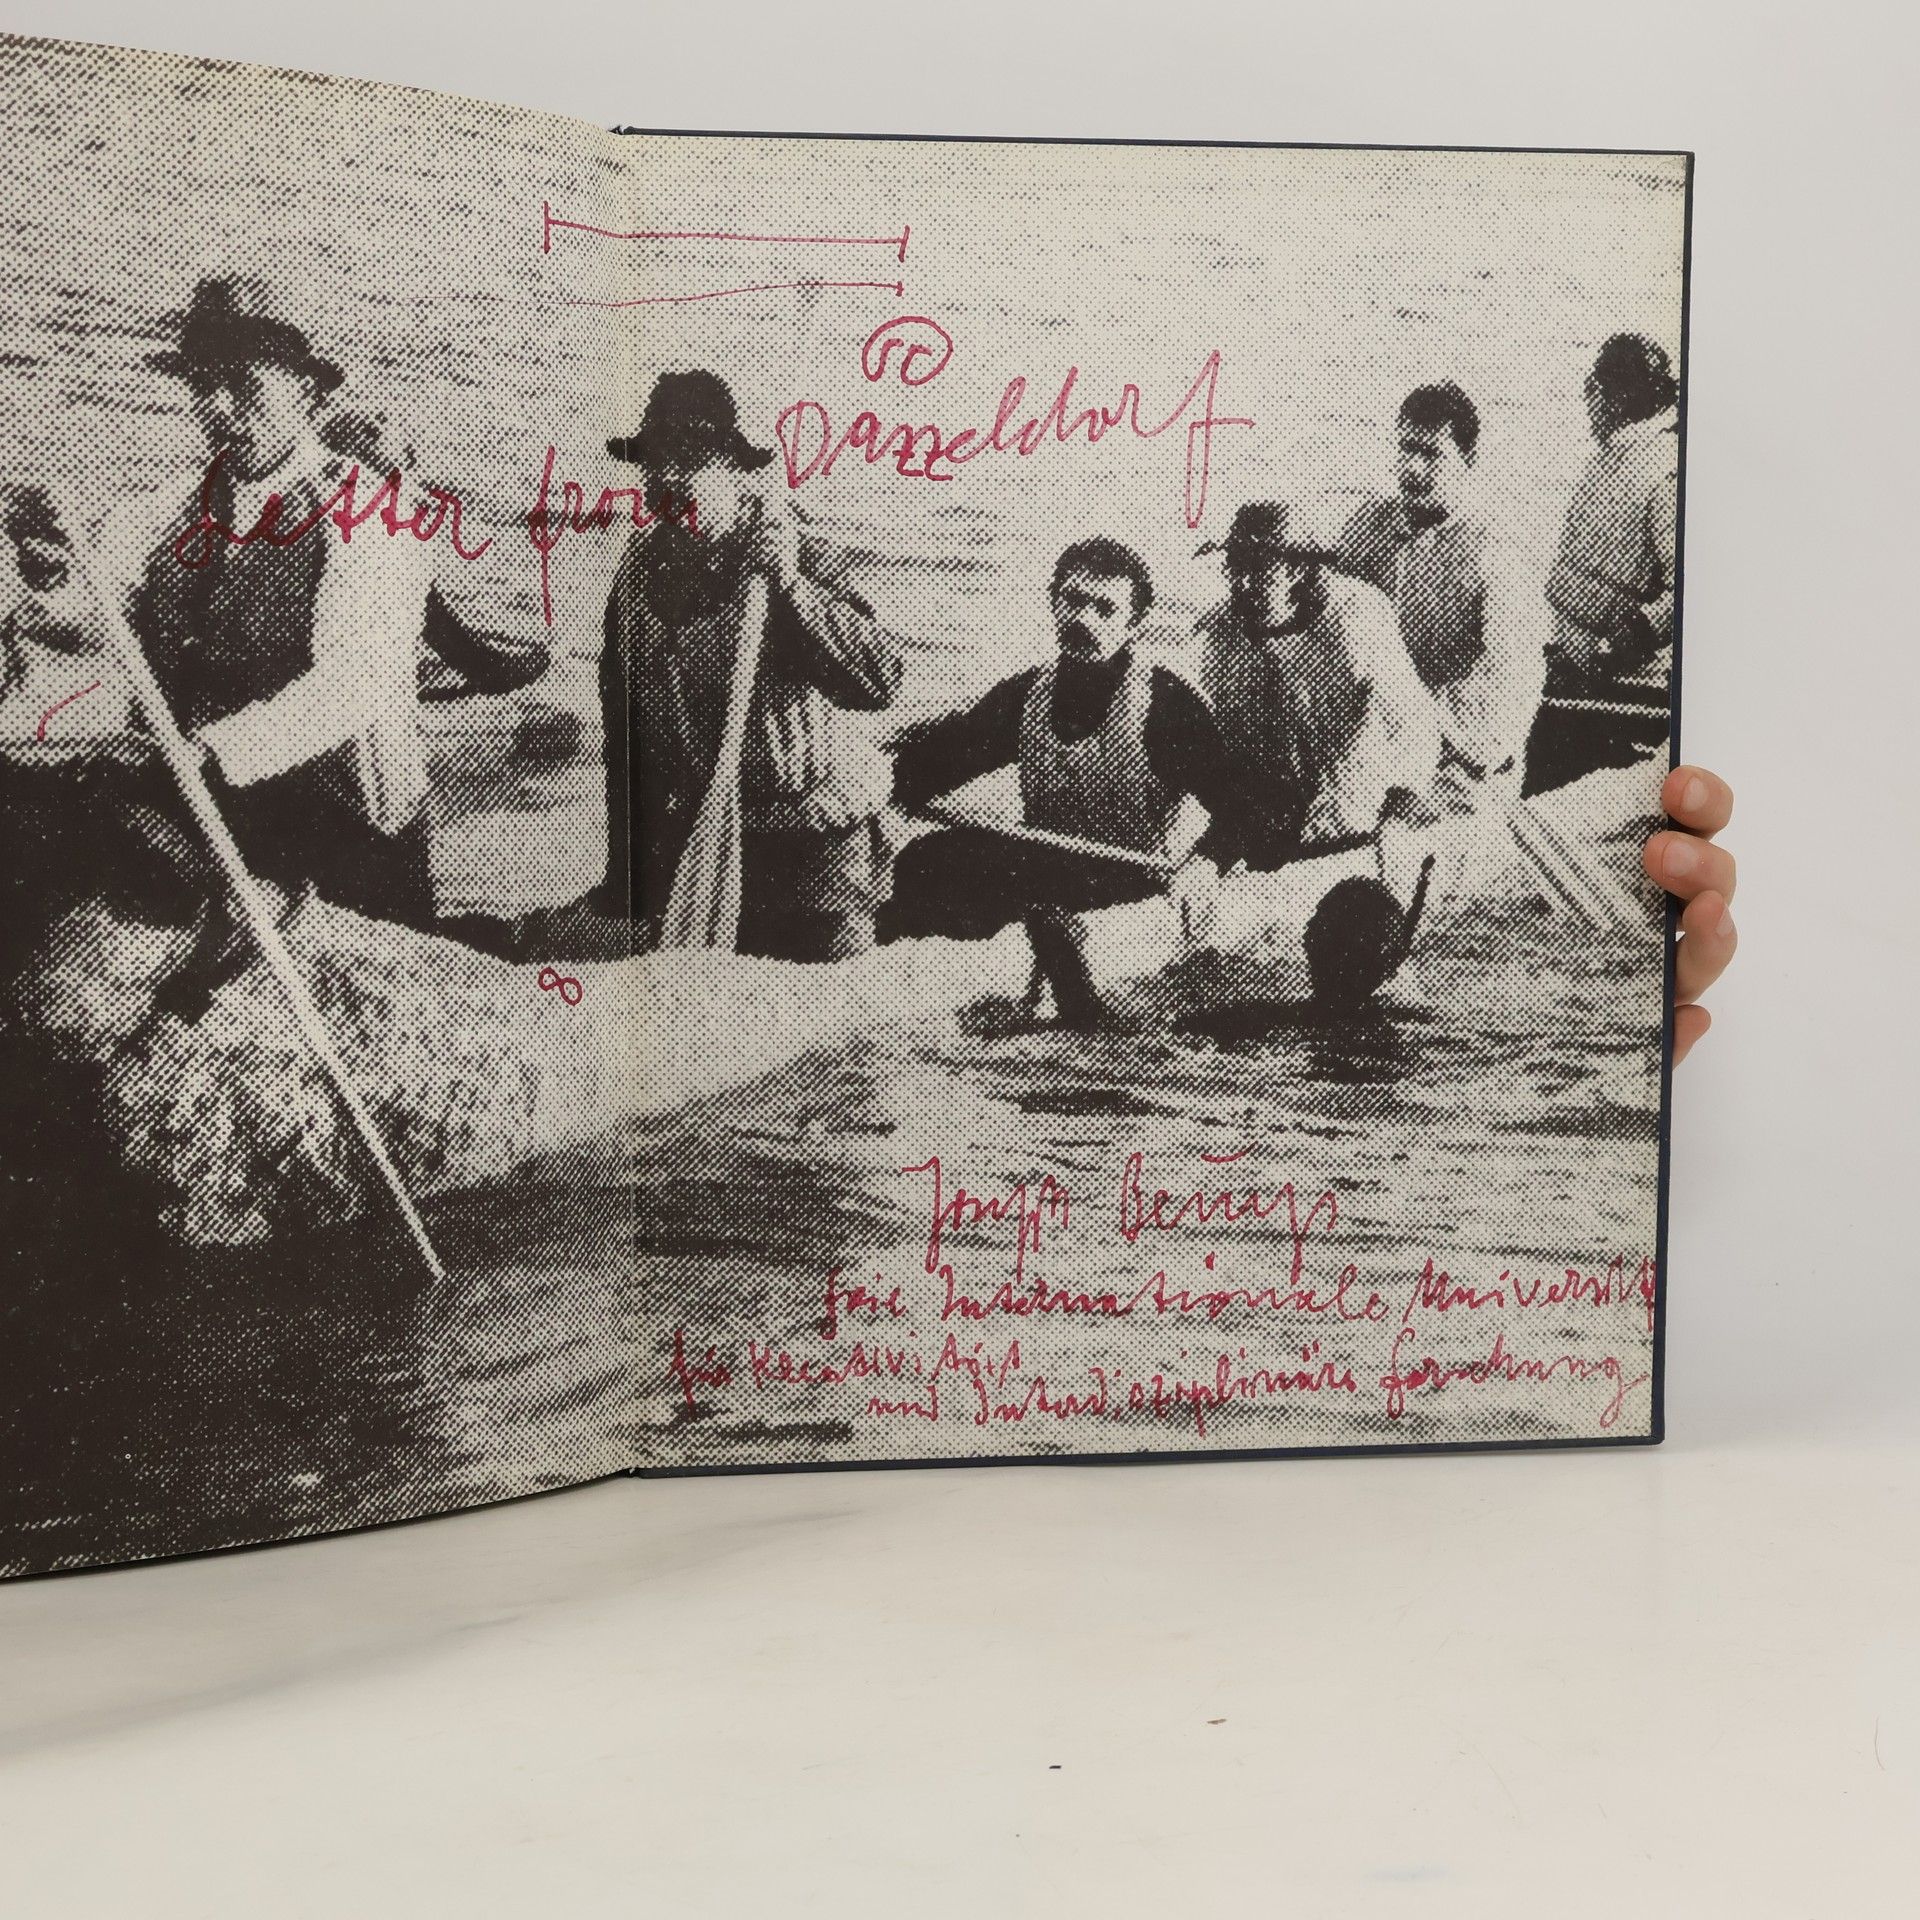 Letter from Dazzeldorf
8
Joseph Beuys
freie Internationale Universität
für Kreativität
und Interdisziplinäre forschung